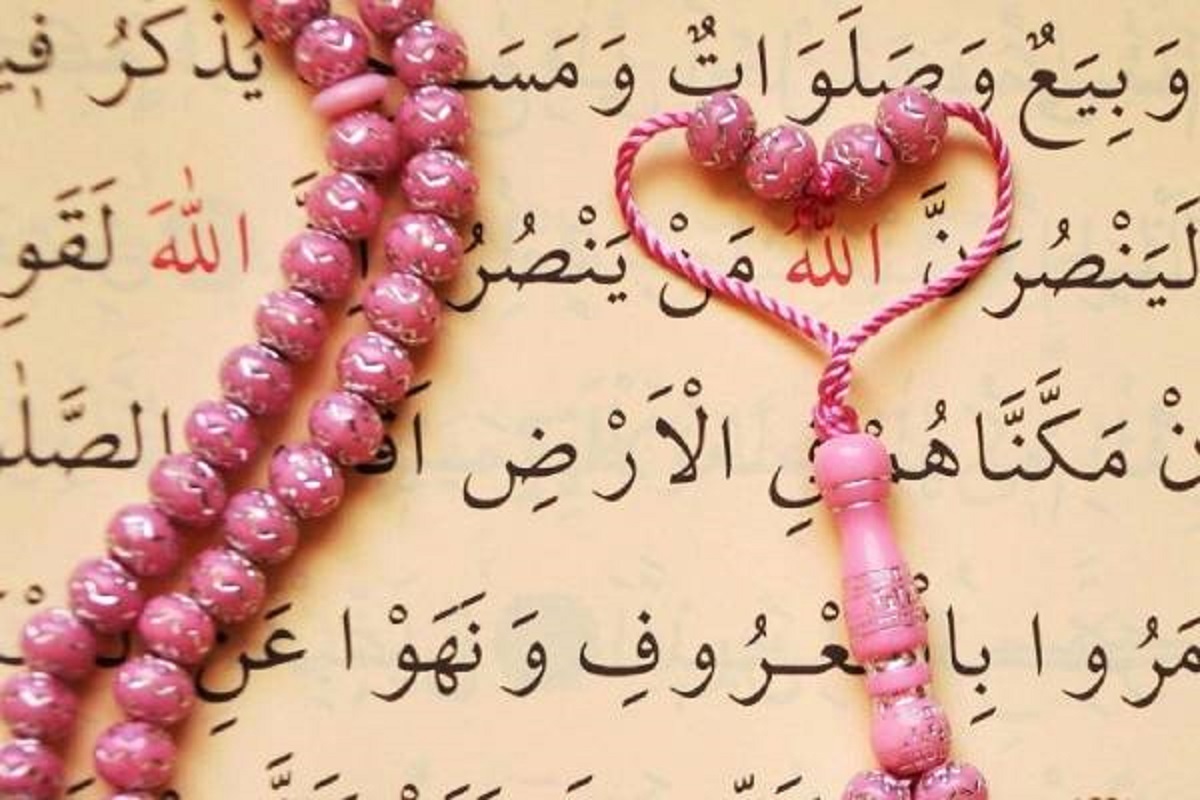 وَ بِيَعٌ وَ صَلَوَاتٌ وَ مَسَـ يُذْكَرُ فِي
لَيَنْصُرَنَّ اللّٰهُ مَنْ يَنْصُرُ اللّٰهَ لَقَوِ
نْ مَكَّنَّاهُمْ فِي الْاَرْضِ اَقَا الصَّلٰو
مَرُوا بِالْمَعْرُوفِ وَ نَهَوْا عَنِ